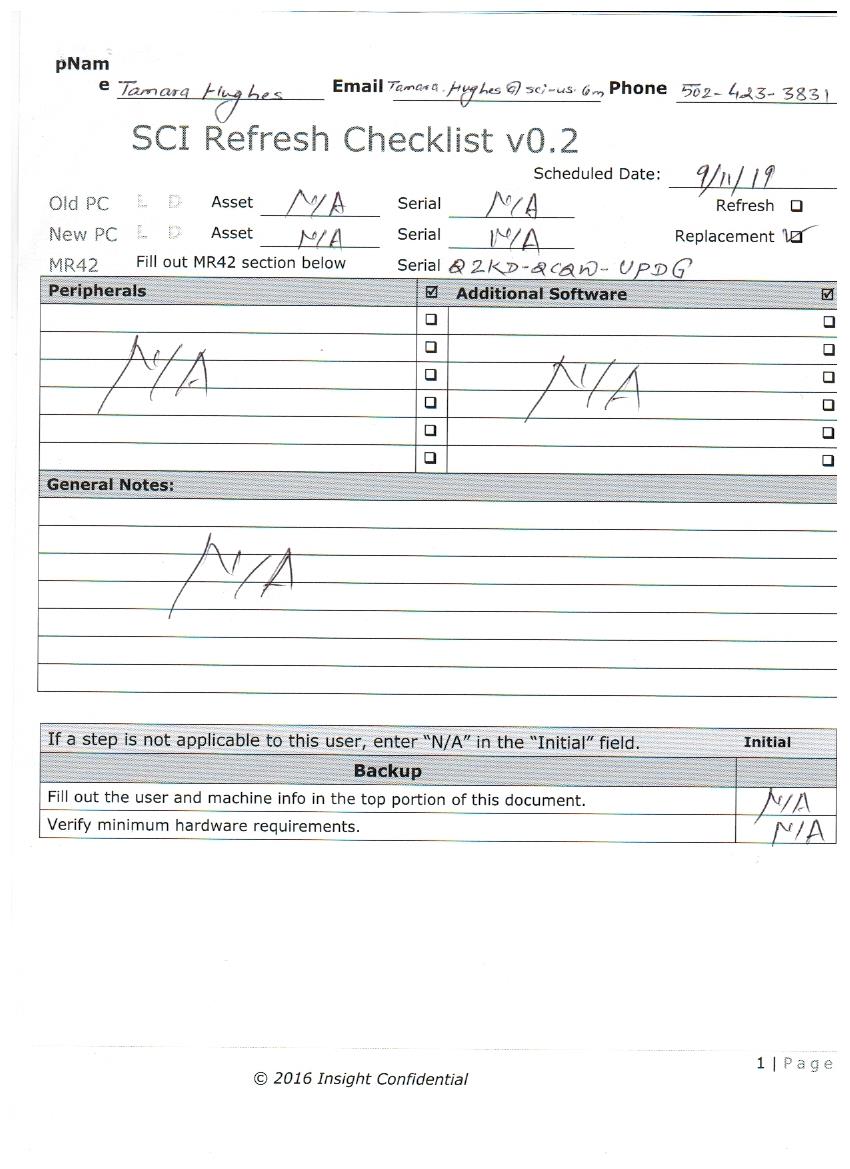 pNam
e Tamara Hughes Email Tamara.Hughes@sci-us.com Phone 502-423-3831
SCI Refresh Checklist v0.2
Scheduled Date: 9/11/19
Old PC L D Asset N/A Serial N/A Refresh ☐
New PC L D Asset N/A Serial N/A Replacement ☑
MR42 Fill out MR42 section below Serial Q2KD-QCQW-UPDG
Peripherals ☑ Additional Software ☑
N/A N/A
General Notes:
N/A
If a step is not applicable to this user, enter “N/A” in the “Initial” field. Initial
Backup
Fill out the user and machine info in the top portion of this document. N/A
Verify minimum hardware requirements. N/A
1 | Page
© 2016 Insight Confidential